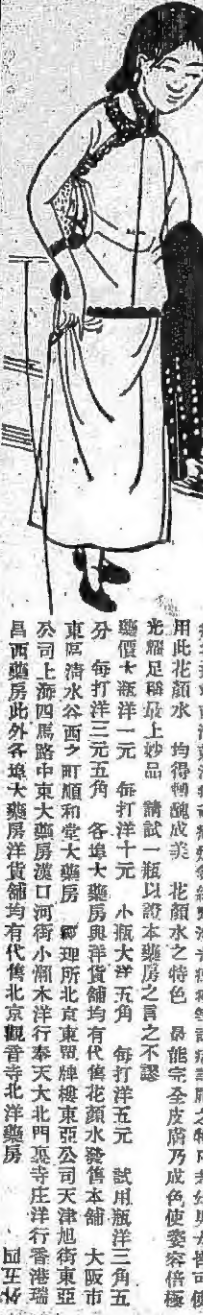 用此花顏水 均得轉醜成美 花顏水之特色 最能完全皮膚乃成色使姿容倍極
光耀足稱最上妙品 請試一瓶以證本藥房之言之不謬
藥價大瓶洋一元 每打洋十元 小瓶大洋五角 每打洋五元 試用瓶洋三角五
分 每打洋三元五角 各埠大藥房與洋貨舖均有代售花顏水發售本舖 大阪市
東區清水谷西之町順和堂大藥房 理所北京東單牌樓東亞公司天津旭街東亞
公司上海四馬路中東大藥房漢口河街小木洋行奉天大北門裏寺庄洋行香港瑞
昌西藥房此外各埠大藥房洋貨舖均有代售北京觀音寺北洋藥房